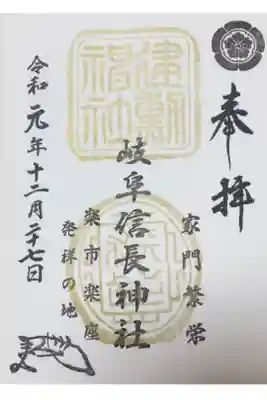 奉拝
家門繁栄
岐阜信長神社
楽市楽座
発祥の地
令和元年十二月二十七日
建勲
神社